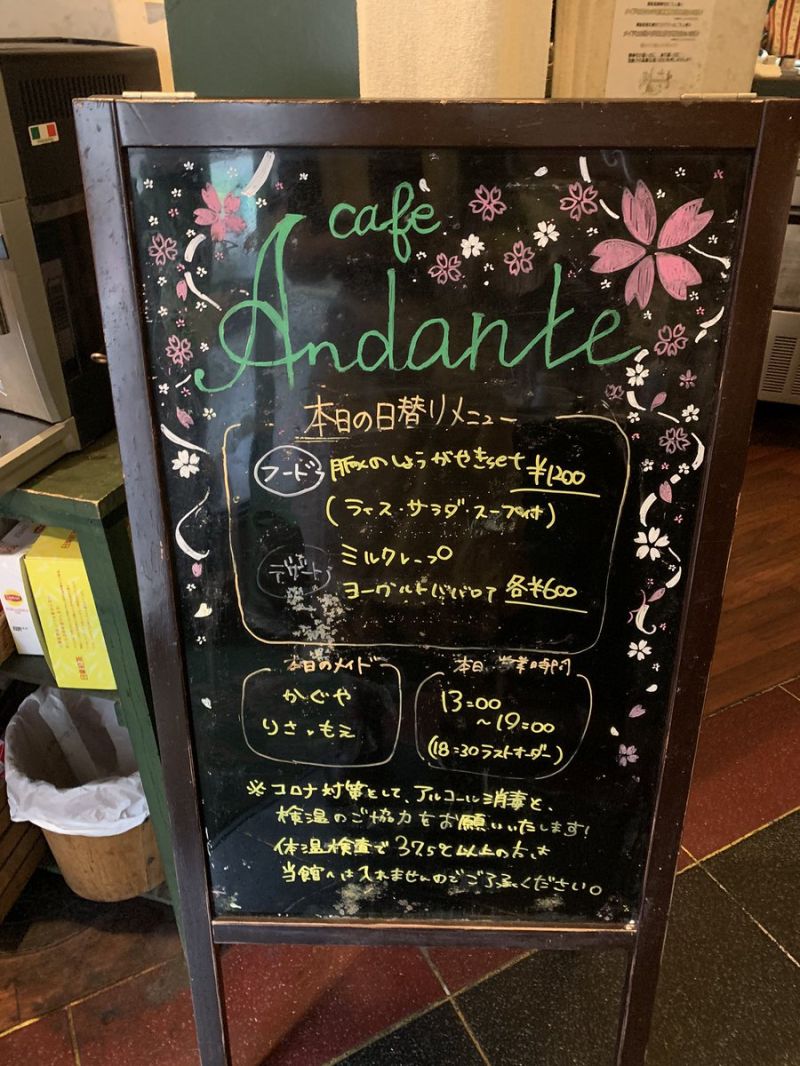 cafe
Andante
本日の日替りメニュー
フード 豚のしょうがやきset ¥1200
(ライス・サラダ・スープ付)
デザート ミルクレープ
ヨーグルトババロア 各¥600
本日のメイド
かぐや
りさ もえ
本日 営業時間
13:00
～19:00
(18:30ラストオーダー)
※コロナ対策として、アルコール消毒と、
検温のご協力をお願いいたします!
体温検査で37.5℃以上の方は
当館へは入れませんのでご了承ください。